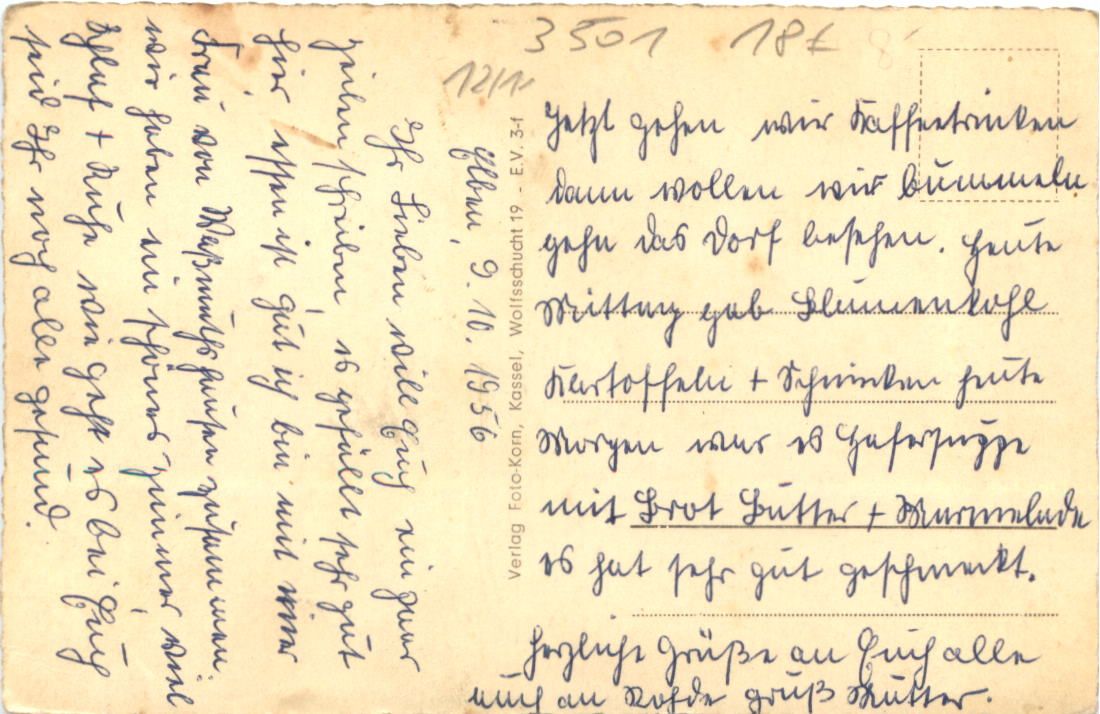 3501 18f
12/11
Elben, 9. 10. 1956
Ihr Lieben will Euch ein paar
Zeilen schreiben, es gefällt sehr gut
hier essen ist gut ich bin mit einer
Frau von zusammen
wir haben ein schönes Zimmer viel
Schlaf + Ruhe wie geht es bei Euch
seid Ihr noch alle gesund.
Jetzt gehen wir Kaffeetrinken
dann wollen wir bummeln
gehn das Dorf besehen. Heute
Mittag gab Blumenkohl
Kartoffeln + Schinken heute
Morgen war es Hafersuppe
mit Brot Butter + Marmelade
es hat sehr gut geschmeckt.
Herzliche Grüße an Euch alle
auch an Rohde gruß Mutter.
Verlag Foto-Korn, Kassel, Wolfsschucht 19 - E.V. 3-f